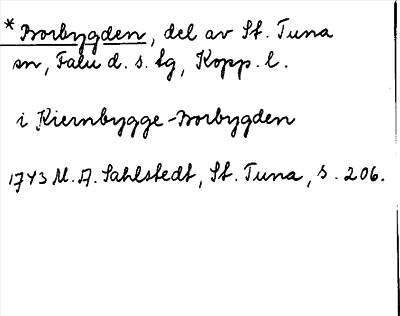 * Borbygden, del av St. Tuna
sn, Falu d. s. tg, Kopp. l.
i Kiernbygge-Borbygden
1743 M. A. Sahlstedt, St. Tuna, s. 206.